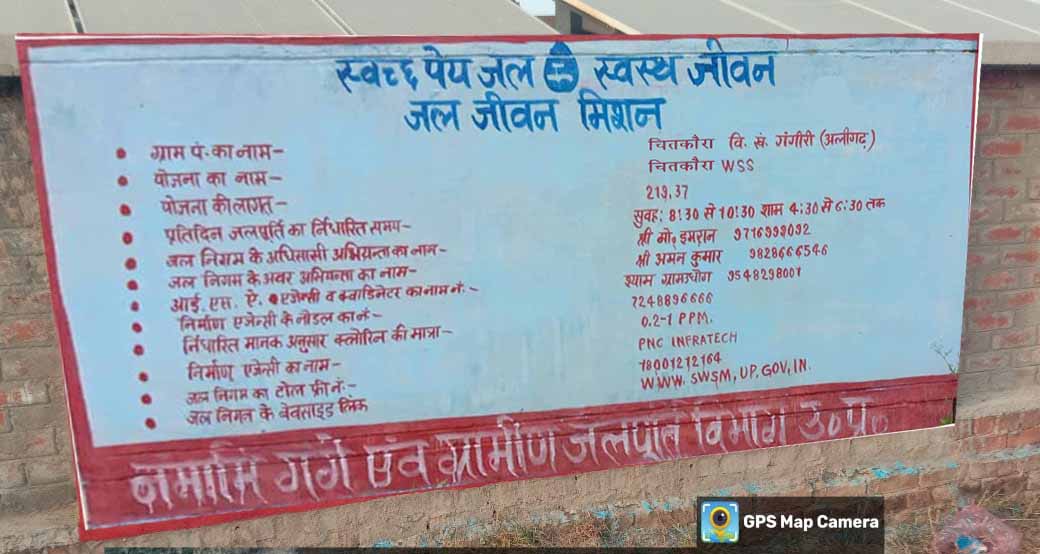 स्वच्छ पेय जल स्वस्थ जीवन
जल जीवन मिशन
ग्राम पं. का नाम- चितकौरा वि. खं. गंगीरी (अलीगढ़)
योजना का नाम- चितकौरा WSS
योजना की लागत- 219.37
प्रतिदिन जलपूर्ति का निर्धारित समय- सुबह: 8:30 से 10:30 शाम 4:30 से 6:30 तक
जल निगम के अधिसासी अभियन्ता का नाम- श्री मो॰ इमरान 9716999092
जल निगम के अवर अभियन्ता का नाम- श्री अमन कुमार 9828666546
आई. एस. ऐ. एजेन्सी व क्वाडिनेटर का नाम नं:- श्याम ग्रामउधोग 9548298001
निर्माण एजेन्सी के नोडल का नं- 7248896666
निर्धारित मानक अनुसार क्लोरिन की मात्रा- 0.2-1 PPM.
निर्माण एजेन्सी का नाम- PNC INFRATECH
जल निगम का टोल फ्री नं:- 18001212164
जल निगम के वेवसाइड लिंक WWW. SWSM, UP. GOV, IN.
नमामि गंगे एंव ग्रामीण जलपूर्ति विभाग उ०प्र०
GPS Map Camera